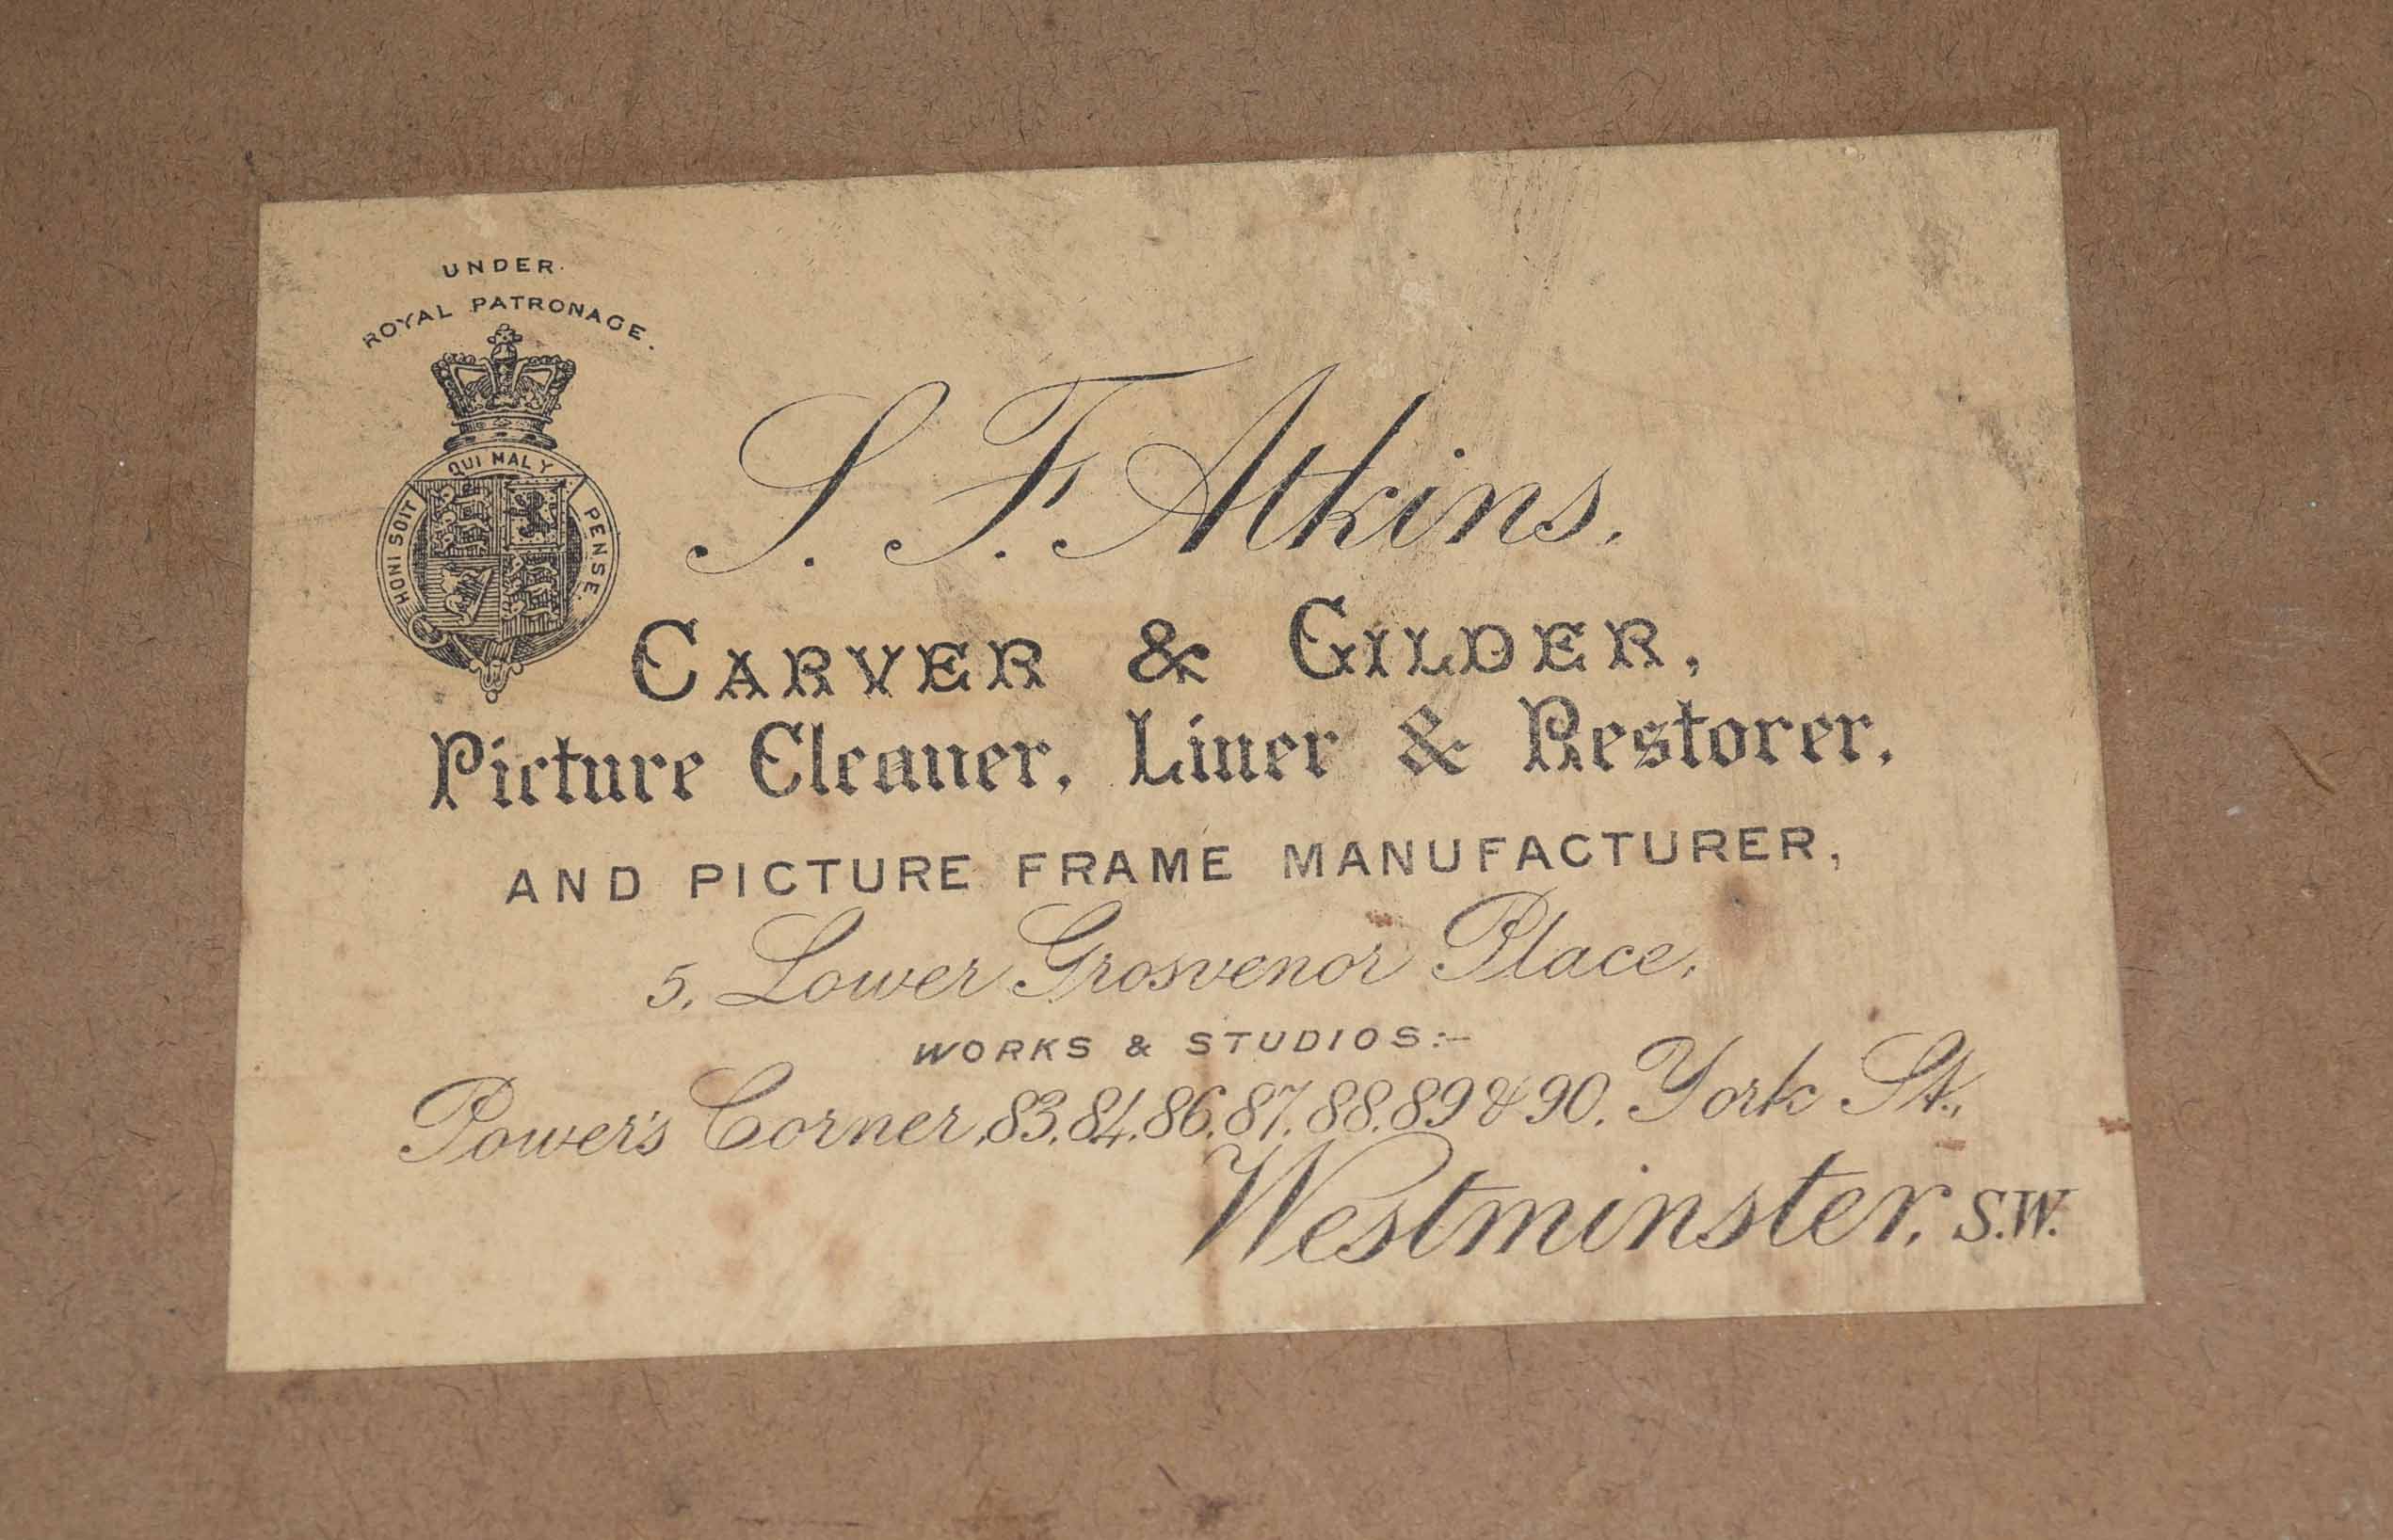 UNDER
ROYAL PATRONAGE.
HONI SOIT QUI MAL Y PENSE
S. F. Atkins.
CARVER & GILDER,
Picture Cleaner, Liner & Restorer,
AND PICTURE FRAME MANUFACTURER,
5, Lower Grosvenor Place,
WORKS & STUDIOS:-
Power's Corner, 83, 84, 86, 87, 88, 89 & 90, York St.,
Westminster, S.W.